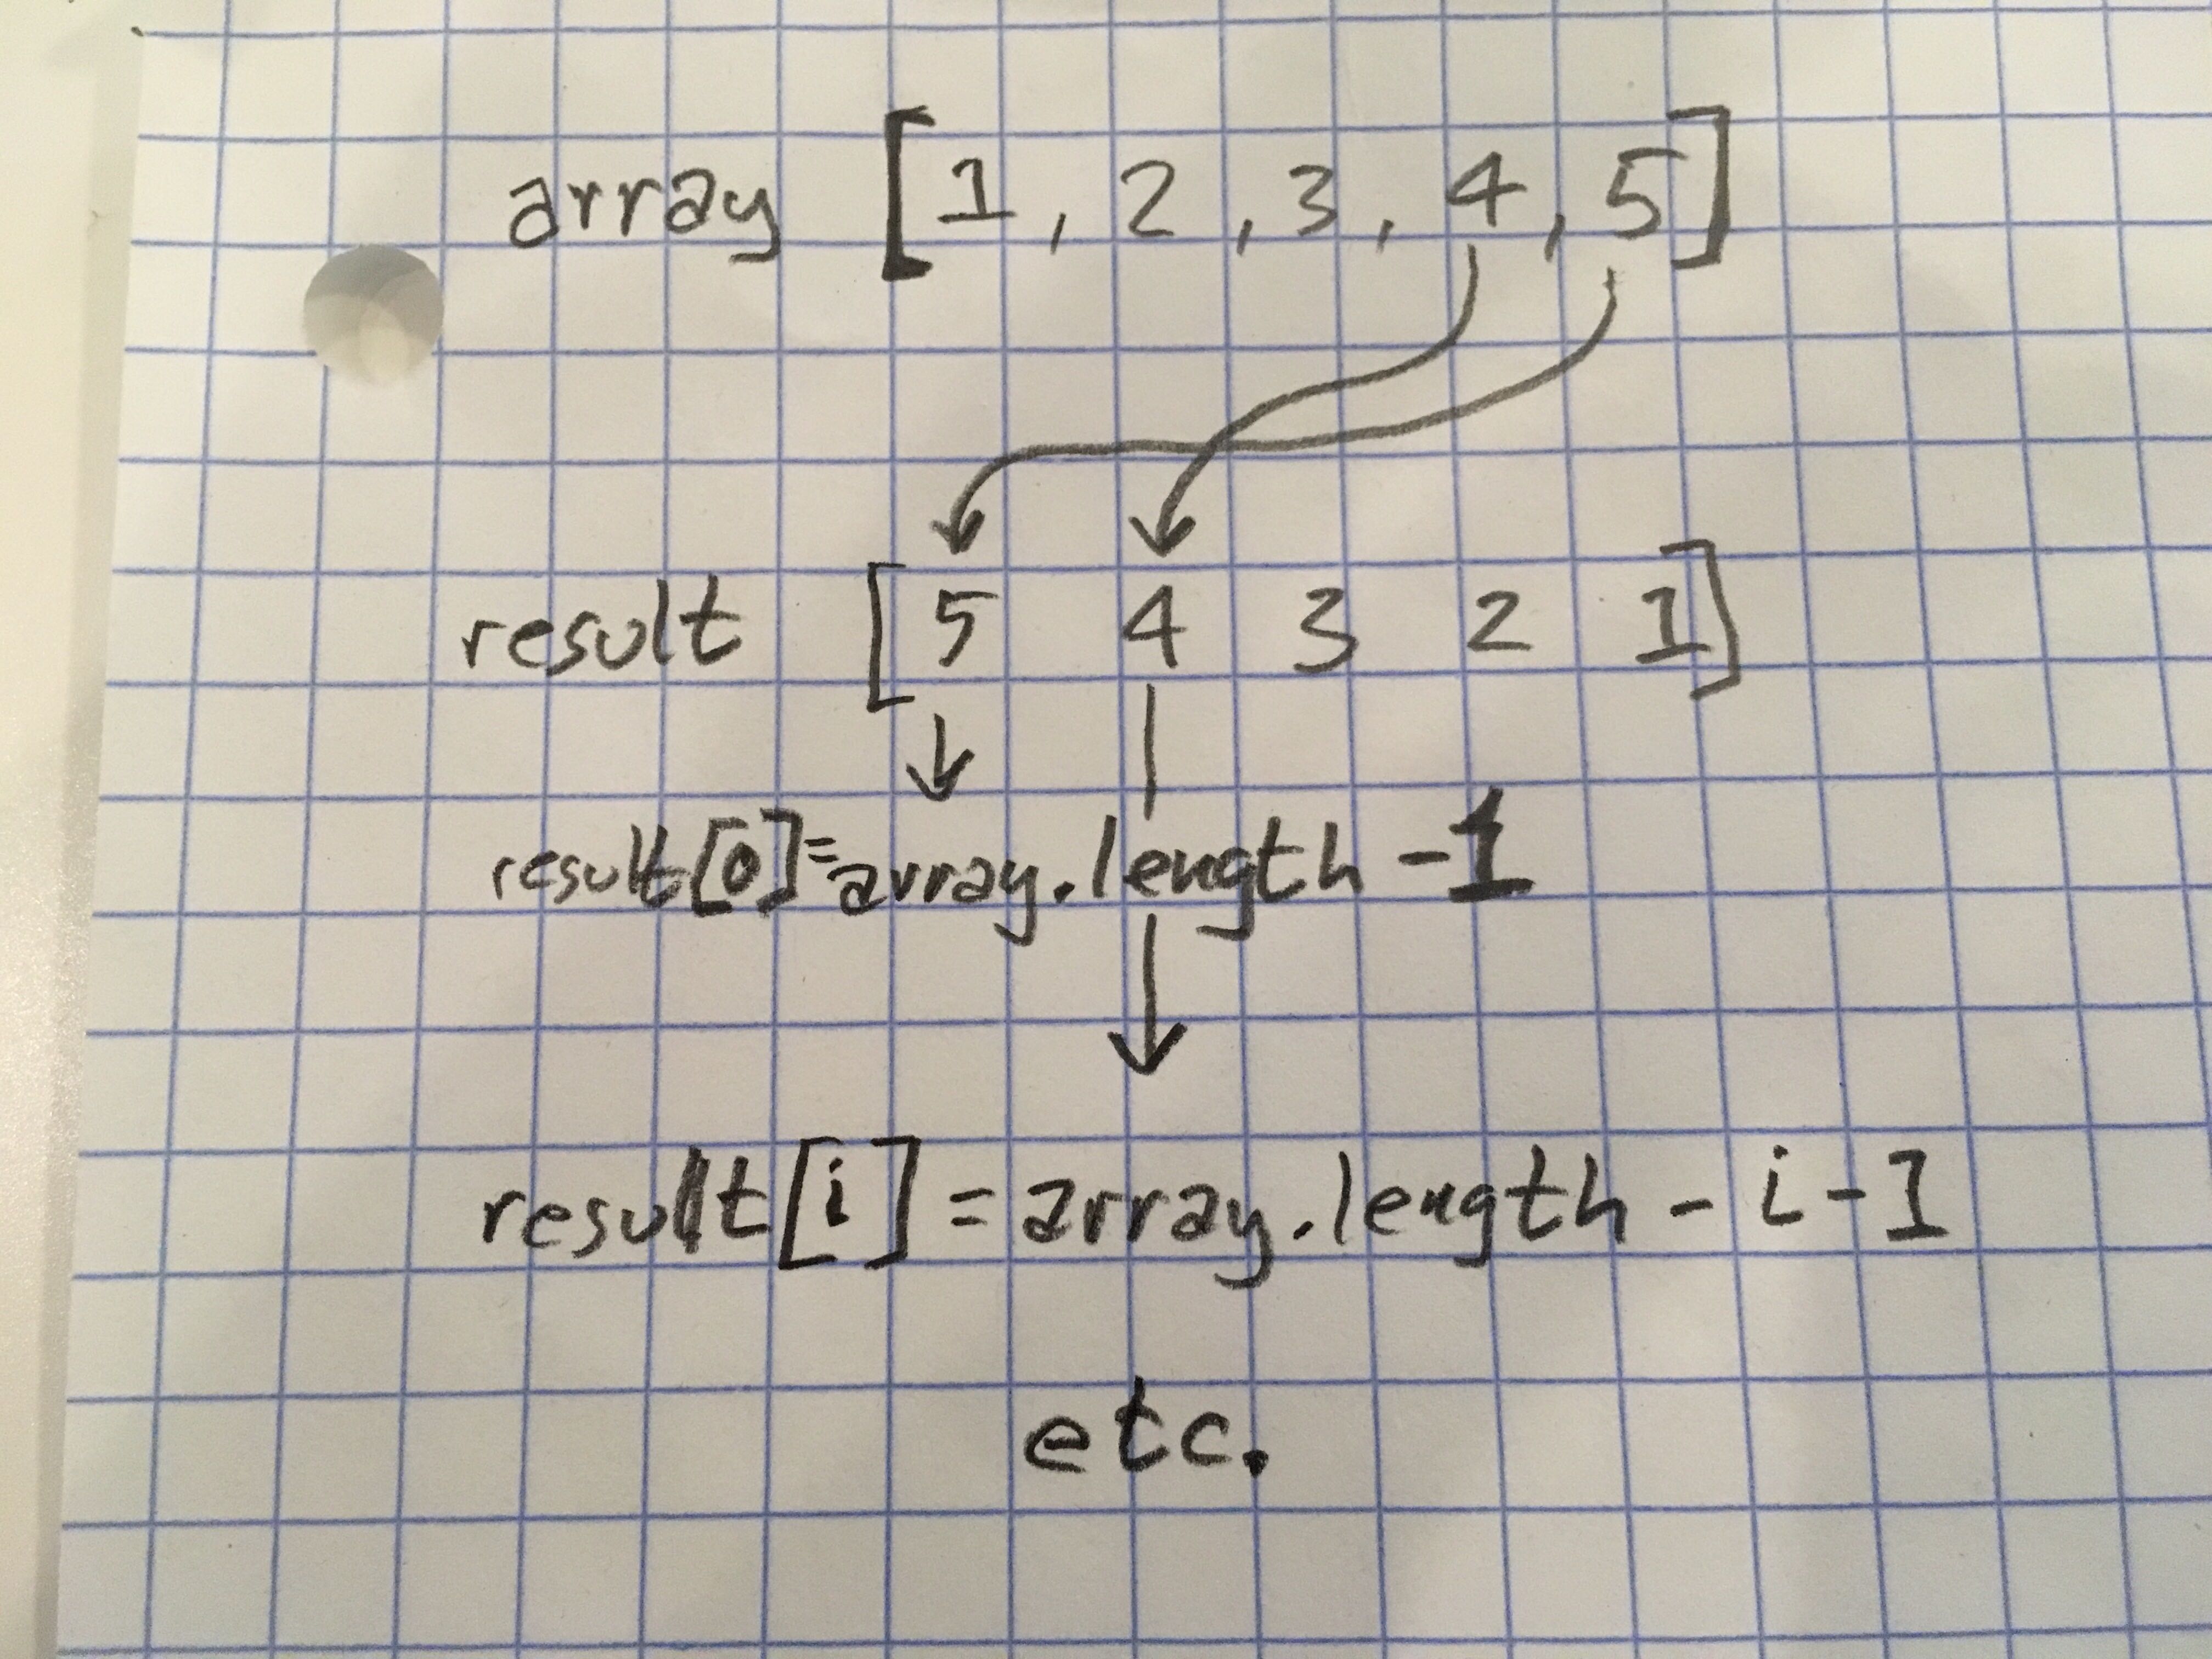 array [1, 2, 3, 4, 5]
result [5 4 3 2 1]
result[0]=array.length -1
result[i] = array.length - i - 1
etc.